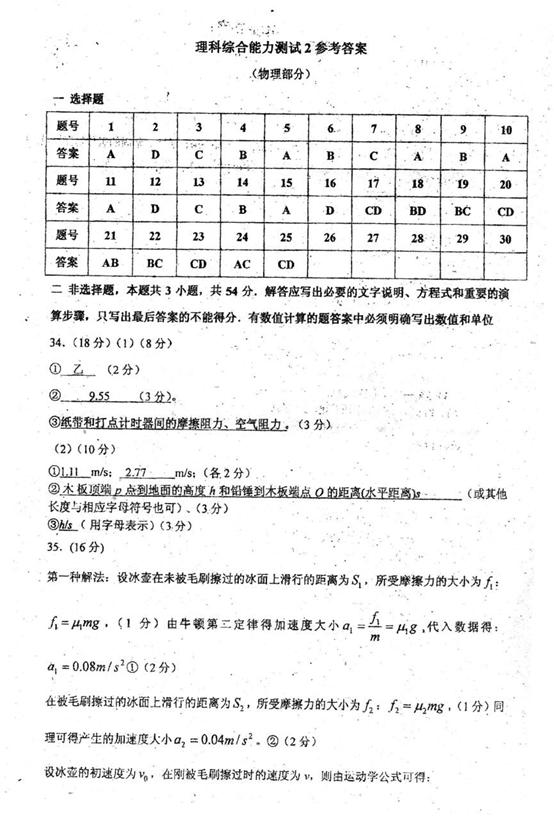 理科综合能力测试2参考答案
(物理部分)
一 选择题
题号 1 2 3 4 5 6 7 8 9 10
答案 A D C B A B C A B A
题号 11 12 13 14 15 16 17 18 19 20
答案 A D C B A D CD BD BC CD
题号 21 22 23 24 25 26 27 28 29 30
答案 AB BC CD AC CD
二 非选择题，本题共3小题，共54分．解答应写出必要的文字说明、方程式和重要的演
算步骤，只写出最后答案的不能得分．有数值计算的题答案中必须明确写出数值和单位
34.（18分）(1)（8分）
① 乙 （2分）
② 9.55 （3分）。
③纸带和打点计时器间的摩擦阻力、空气阻力。（3分）
(2)（10分）
①1.11 m/s； 2.77 m/s；（各2分）
②木板顶端p点到地面的高度h和铅锤到木板端点O的距离(水平距离)s （或其他
长度与相应字母符号也可）、（3分）
③h/s（用字母表示）（3分）
35.（16分）
第一种解法：设冰壶在未被毛刷擦过的冰面上滑行的距离为S₁，所受摩擦力的大小为f₁：
f₁=μ₁mg，（1 分）由牛顿第二定律得加速度大小a₁=f₁/m=μ₁g,代入数据得：
a₁=0.08m/s²①（2分）
在被毛刷擦过的冰面上滑行的距离为S₂，所受摩擦力的大小为f₂：f₂=μ₂mg，（1分）同
理可得产生的加速度大小a₂=0.04m/s²。②（2分）
设冰壶的初速度为v₀，在刚被毛刷擦过时的速度为v，则由运动学公式可得：